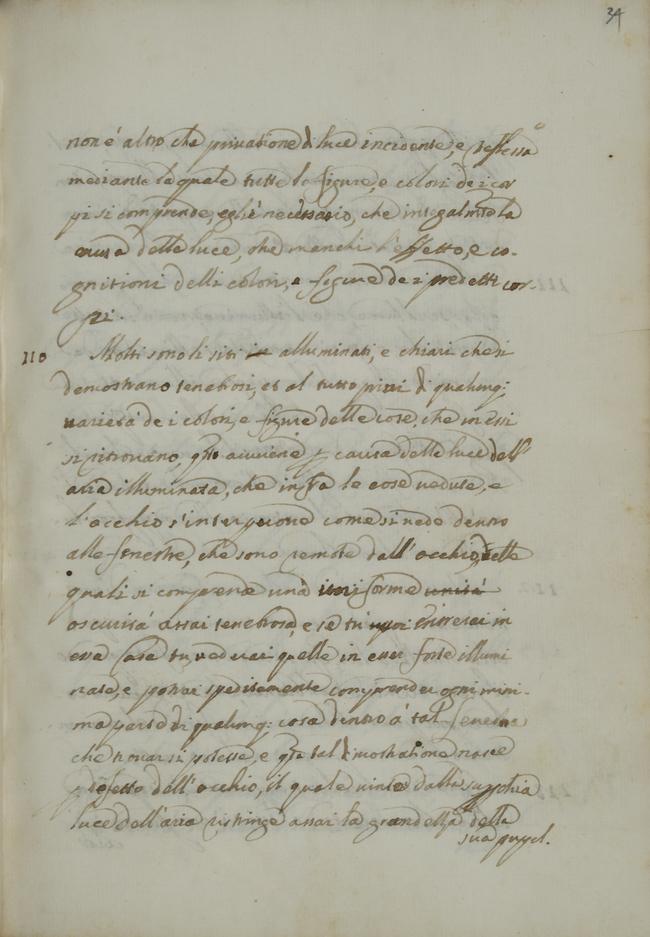 34
non é altro che privatione di luce incidente, e reflessa
mediante la quale tutte le figure, e colori de i cor
pi si comprende, eglié necessario, che integalmte la
causa delle luce, che manchi l'effetto, e co-
gnitioni delli colori, e figure de i predetti cor-
pi.
110 Molti sono li siti in alluminati, e chiari che si
demostrano tenebrosi, et al tutto privi di qualunq;
varietá de i colori, e figure delle cose, che in essi
si ritrovano, qto avviene p causa delle luce dell'
aria illuminata, che infra le cose vedute, e
l'occhio s'interpone come si vede dentro
alle fenestre, che sono remote dall'occhio, delle
quali si comprende una uniforme unitá
oscuritá assai tenebrosa, e se tu entrerai in
essa casa tu vederai quelle in esser forte illumi
nate, e potrai speditamente comprender ogni mini-
ma parte di qualunq; cosa dentro á tal fenestra
che trovar si potesse, e qta tal dimostratione nasce
p difetto dell'occhio, il quale vinto dalla supchia
luce dell'aria ristringe assai la grandezza della
sua pupil.